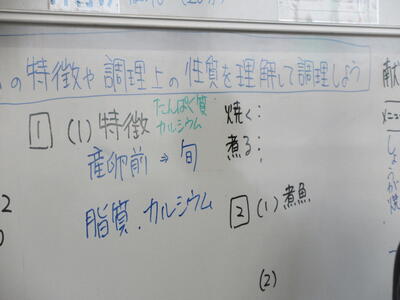 の特徴や調理上の性質を理解して調理しよう
1 (1) 特徴
たんぱく質
カルシウム
産卵前 ⇒ 旬
脂質. カルシウム
焼く:
煮る:
2 (1) 煮魚
(2)
献立
メニュー
しょうが焼
2